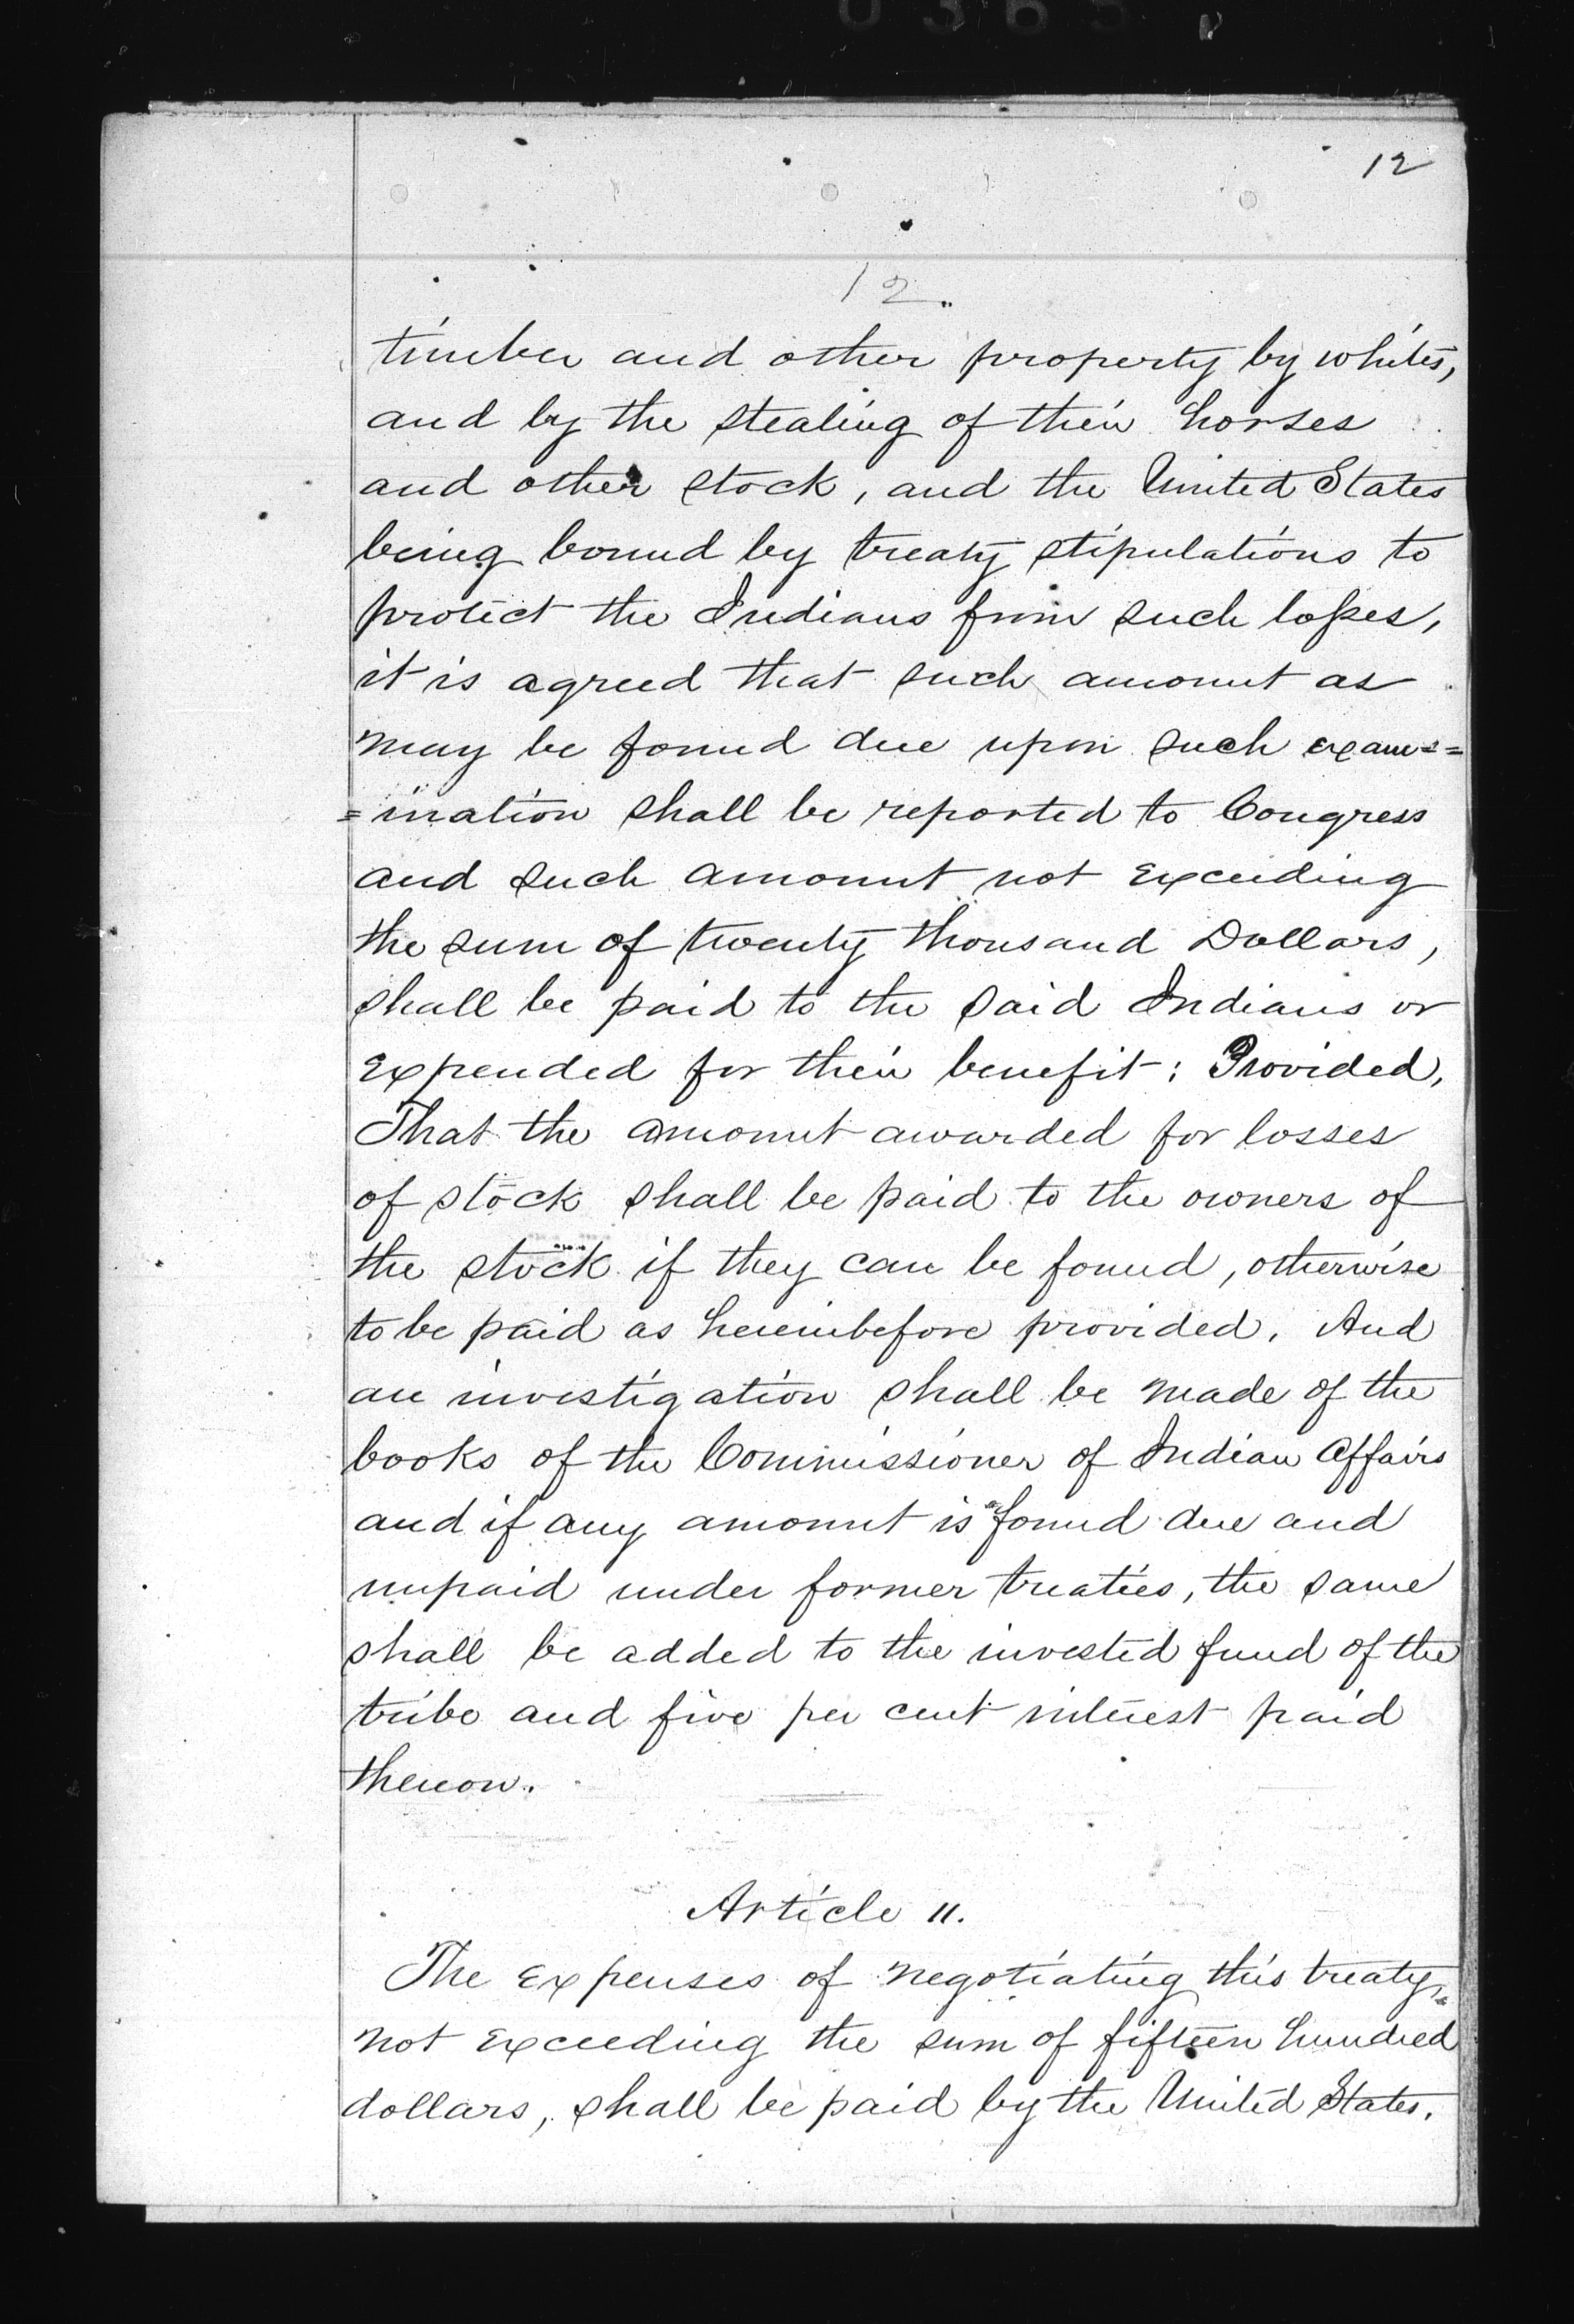 0365
12
12.
timber and other property by whites,
and by the stealing of their horses
and other stock, and the United States
being bound by treaty stipulations to
protect the Indians from such losses,
it is agreed that such amount as
may be found due upon such exam==
=ination shall be reported to Congress
and such amount not exceeding
the sum of twenty thousand Dollars,
shall be paid to the said Indians or
expended for their benefit; Provided,
That the amount awarded for losses
of stock shall be paid to the owners of
the stock if they can be found, otherwise
to be paid as hereinbefore provided. And
an investigation shall be made of the
books of the Commissioner of Indian Affairs
and if any amount is found due and
unpaid under former treaties, the same
shall be added to the invested fund of the
tribe and five per cent interest paid
thereon.
Article 11.
The expenses of negotiating this treaty,
not exceeding the sum of fifteen hundred
dollars, shall be paid by the United States.